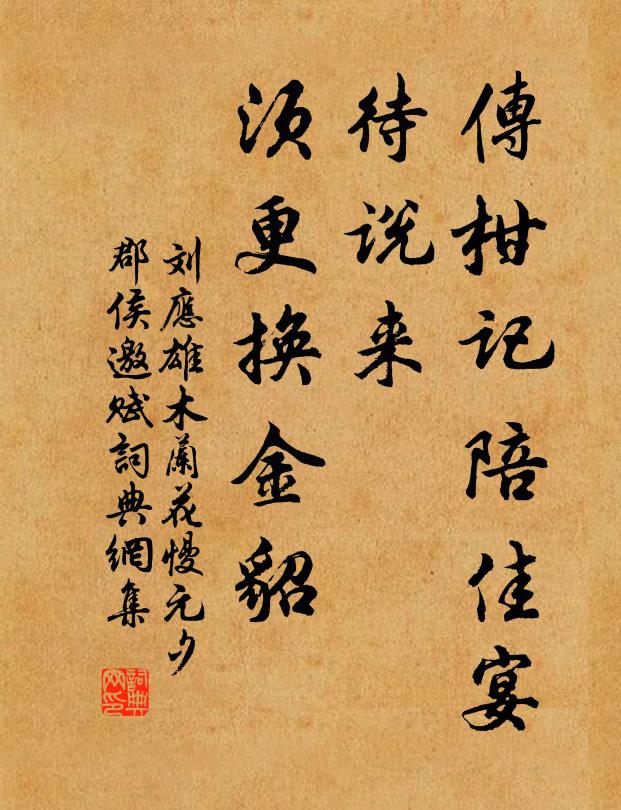 傳柑記陪佳宴
待说来
須更換金貂
刘應雄木蘭花慢元夕
郡侯邀赋詞典網集
詞典
网印